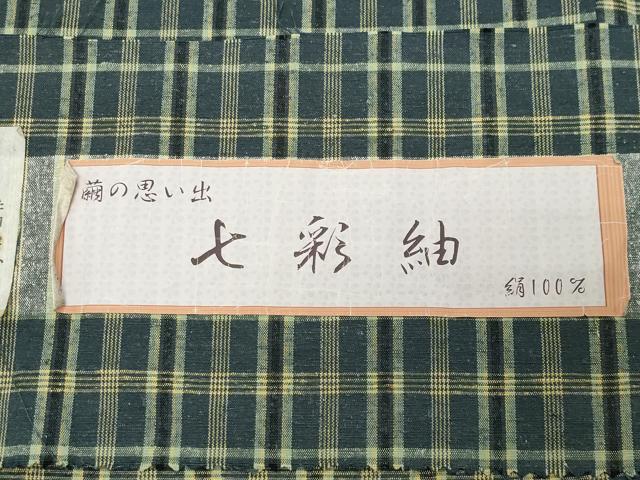 繭の思い出
七彩紬
絹100%